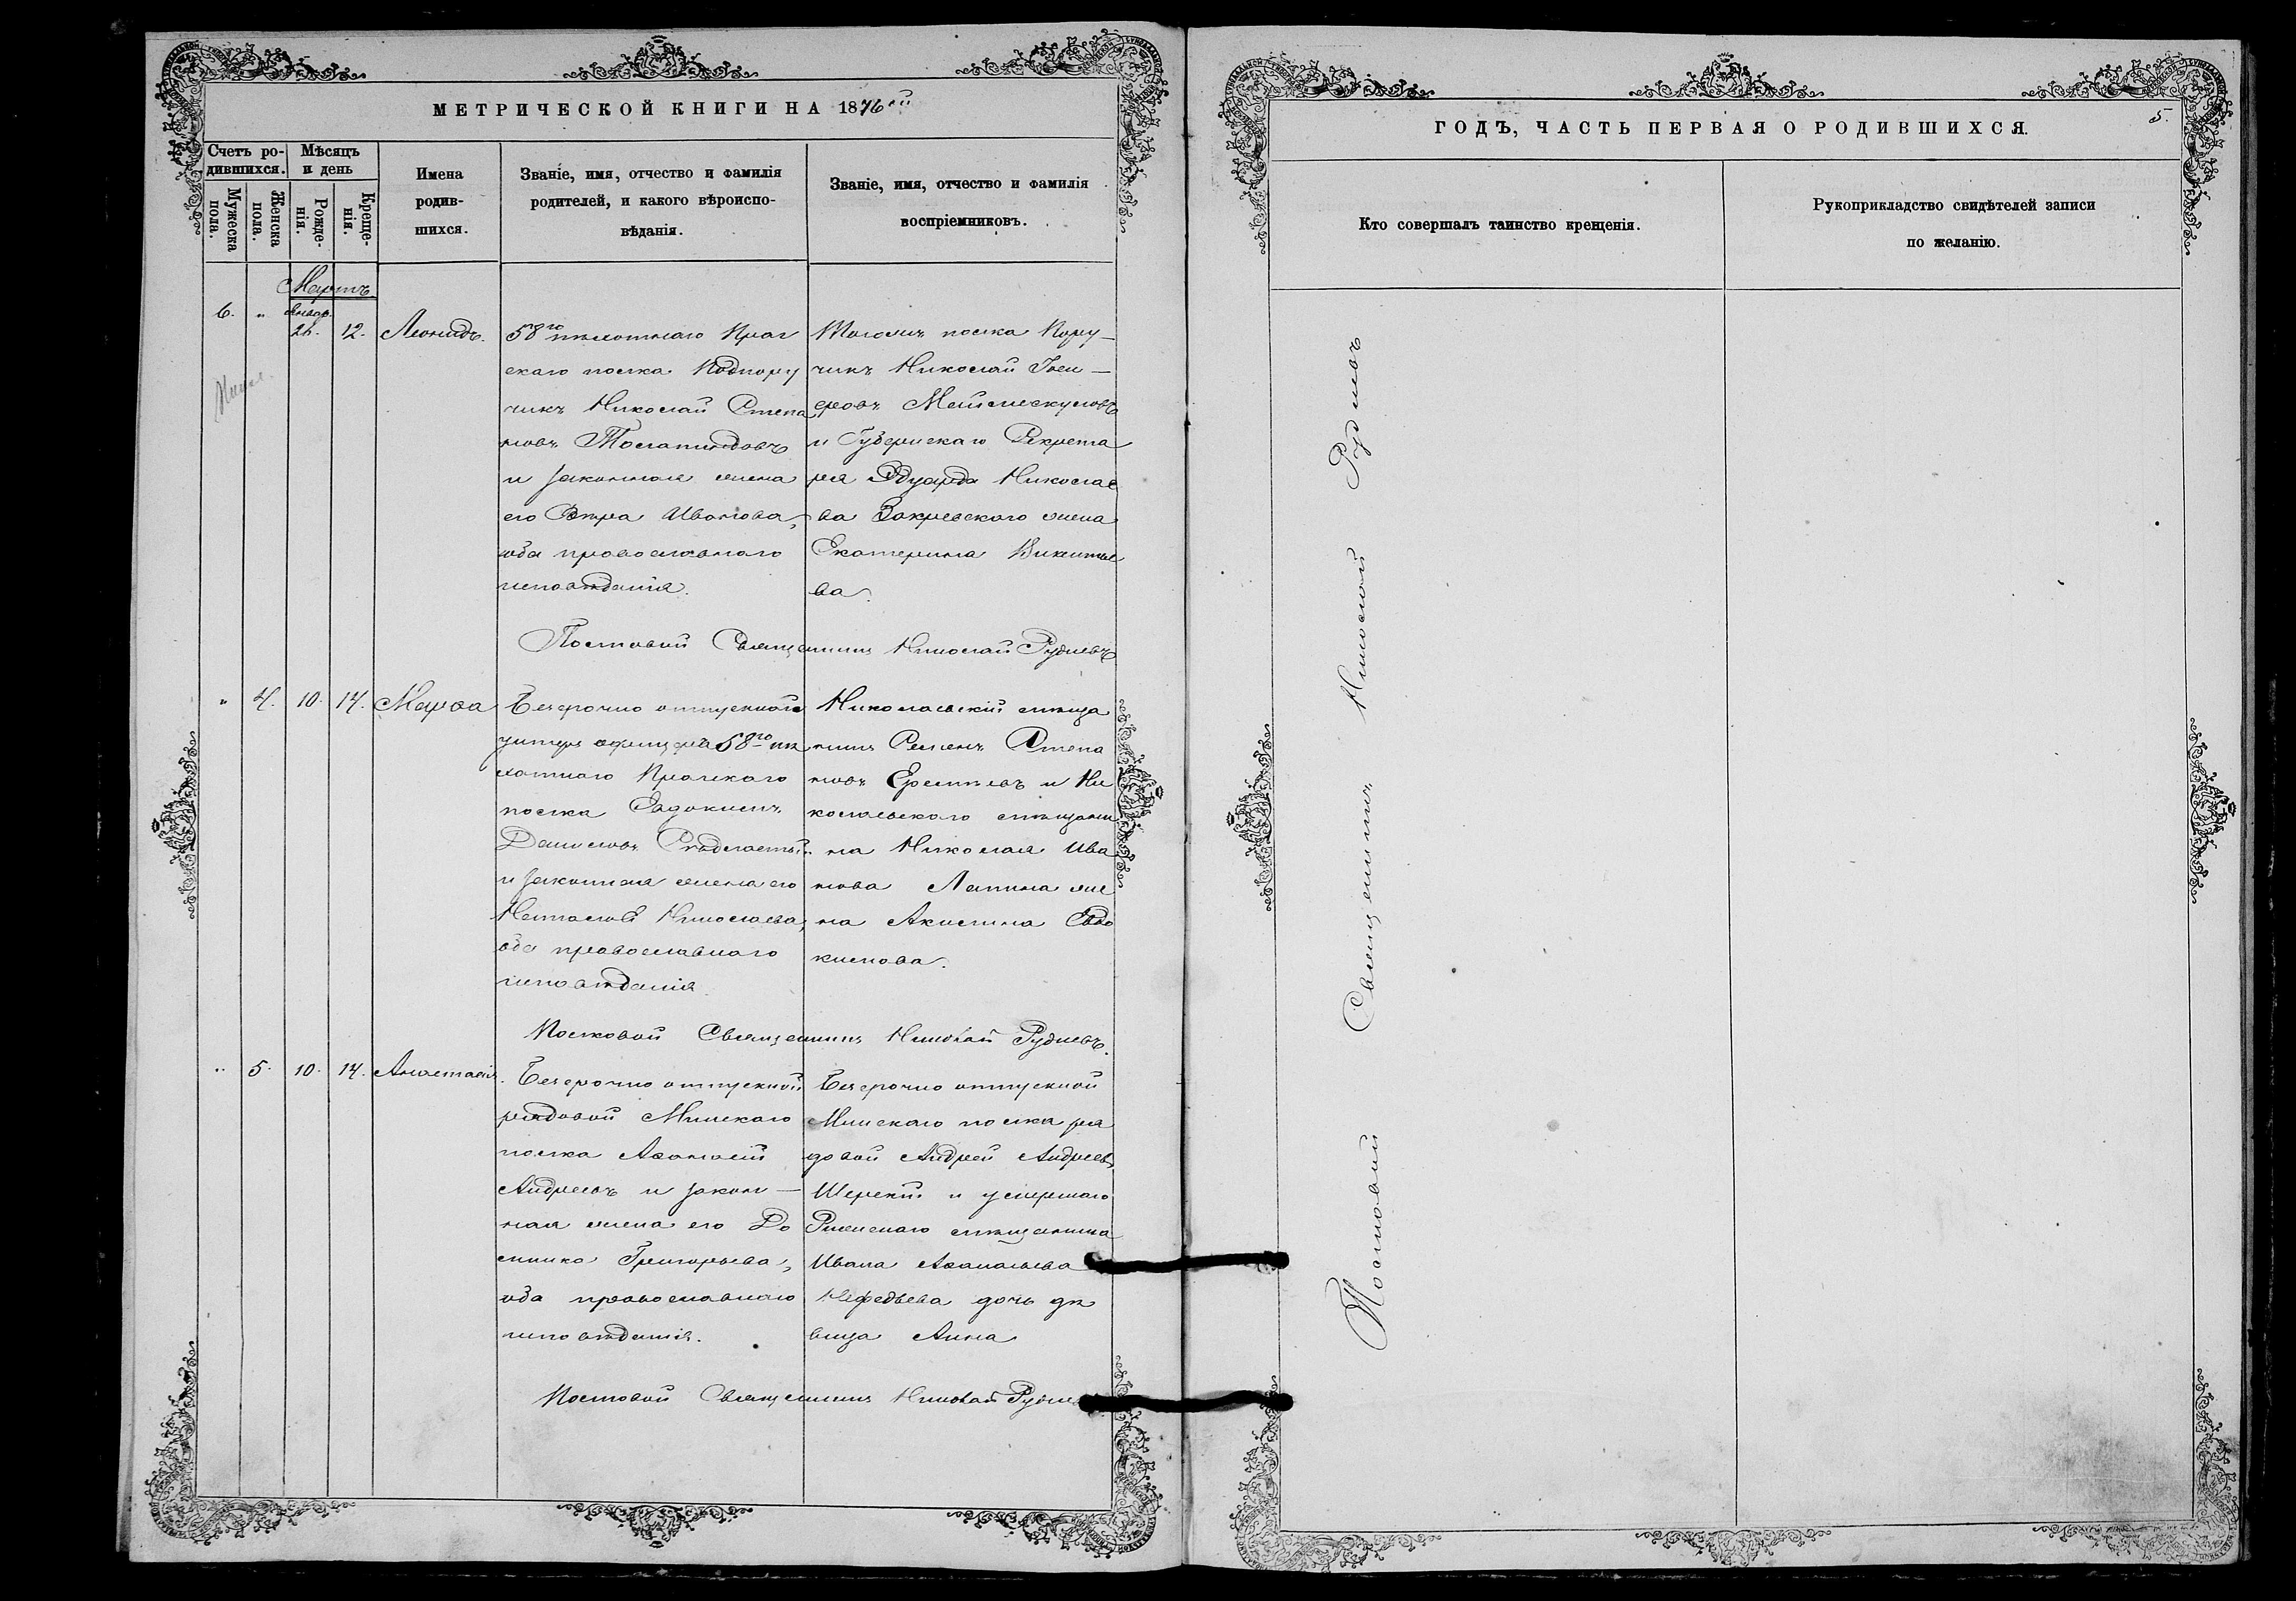 МЕТРИЧЕСКОЙ КНИГИ НА 1876ой
Счетъ ро-
дившихся.
Мѣсяцъ
и день
Мужеска
пола.
Женска
пола.
Рожде-
нія.
Креще-
нія.
Имена
родив-
шихся.
Званіе, имя, отчество и фамилія
родителей, и какого вѣроиспо-
вѣданія.
Званіе, имя, отчество и фамилія
воспріемниковъ.
Мартъ.
6.
"
Январ.
26.
12.
Леонидъ.
58го пѣхотнаго Праг
скаго полка Подпору
чикъ Николай Степа
новъ
и законная жена
его Вѣра Иванова,
оба православнаго
исповѣданія.
Тогожъ полка Пору-
чикъ Николай
и Губернскаго Секрета
ря Эдуарда Николае
ва Закревского жена
Екатерина Викентье
ва.
Полковой Священникъ Николай Рудневъ
"
4.
10.
14.
Марѳа
Безсрочно отпускного
унтеръ офицера 58го пѣ
хотнаго Пражскаго
полка Евдокимъ
Даниловъ
и законная жена его
Наталія Николаева,
оба православнаго
исповѣданія
Николаевскій мѣща
нинъ Семенъ Степа
новъ и Ни
колаевского мѣщани
на Николая Ива
нова Лапина же
на Акилина Евдо
кимова.
Полковой Священникъ Николай Рудневъ.
"
5.
10.
14.
Анастасія.
Безсрочно отпускной
рядовой Минскаго
полка Аѳанасій
Андреевъ и закон-
ная жена его До
мника Григорьева,
оба православнаго
исповѣданія.
Безсрочно отпускной
Минскаго полка ря
довой Андрей Андреевъ
и умершаго
мѣщанина
Ивана Аѳанасьева
Нефедьева дочь дѣ
вица Анна
Полковой Священникъ Николай Рудневъ
ГОДЪ, ЧАСТЬ ПЕРВАЯ О РОДИВШИХСЯ.
5.
Кто совершалъ таинство крещенія.
Рукоприкладство свидѣтелей записи
по желанію.
Полковой Священникъ Николай Рудневъ